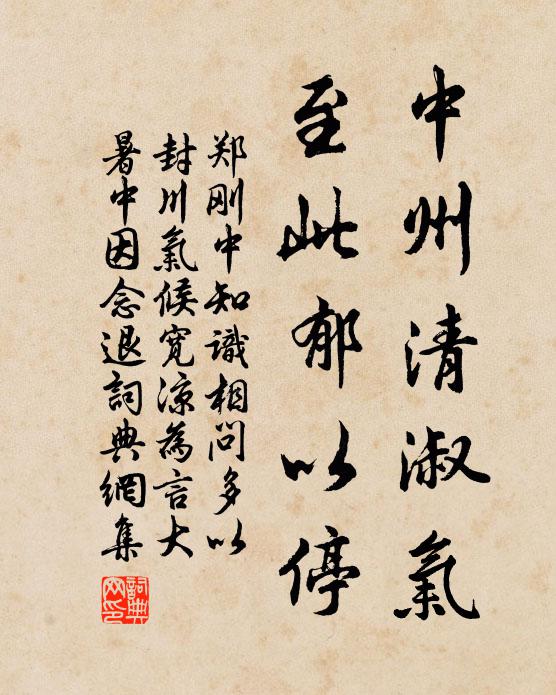 中州清淑氣
至此郁以停
郑刚中知識相問多以
封川氣候寬凉為言大
暑中因念退詞典網集
詞典网印